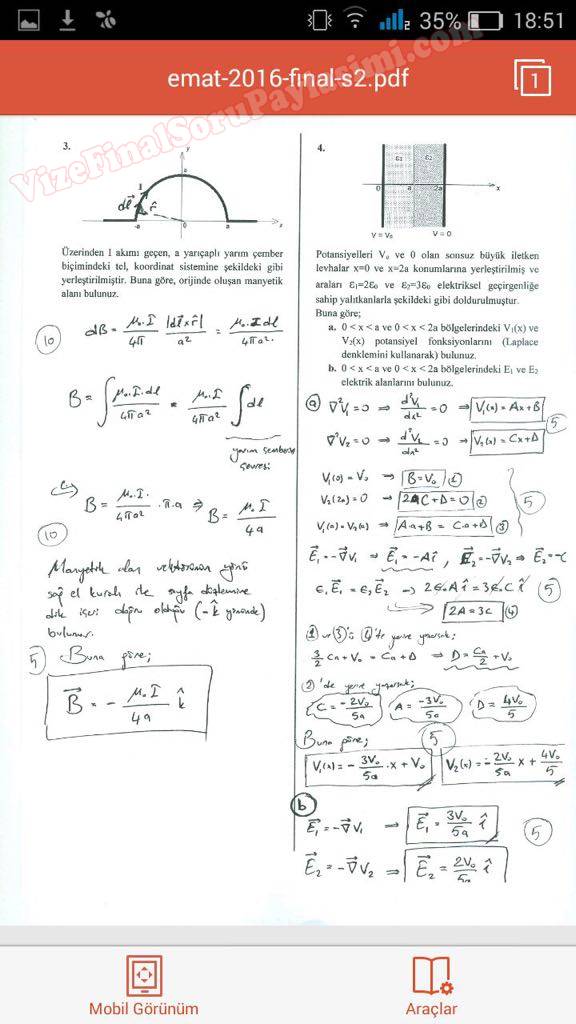 2
35%
18:51
emat-2016-final-s2.pdf
1
VizeFinalSoruPaylasimi.com
3.
y
a
I
dl
r̂
-a
0
a
x
Üzerinden I akımı geçen, a yarıçaplı yarım çember
biçimindeki tel, koordinat sistemine şekildeki gibi
yerleştirilmiştir. Buna göre, orijinde oluşan manyetik
alanı bulunuz.
10
dB = μ₀.I/4π |dl×r̂|/a² = μ₀.I dl/4πa²
B = ∫ μ₀.I.dl/4πa² = μ₀.I/4πa² ∫ dl
yarım çemberin
çevresi
B = μ₀.I/4πa² . π.a ⇒ B = μ₀.I/4a
10
Manyetik alan vektörünün yönü
sağ el kuralı ile sayfa düzlemine
dik içeri doğru olduğu (-k̂ yönünde)
bulunur.
5 Buna göre;
B⃗ = - μ₀.I/4a k̂
4.
ε₁ ε₂
0 a 2a x
V = V₀ V = 0
Potansiyelleri V₀ ve 0 olan sonsuz büyük iletken
levhalar x=0 ve x=2a konumlarına yerleştirilmiş ve
araları ε₁=2ε₀ ve ε₂=3ε₀ elektriksel geçirgenliğe
sahip yalıtkanlarla şekildeki gibi doldurulmuştur.
Buna göre;
a. 0 < x < a ve 0 < x < 2a bölgelerindeki V₁(x) ve
V₂(x) potansiyel fonksiyonlarını (Laplace
denklemini kullanarak) bulunuz.
b. 0 < x < a ve 0 < x < 2a bölgelerindeki E₁ ve E₂
elektrik alanlarını bulunuz.
a ∇²V₁=0 ⇒ d²V₁/dx² = 0 ⇒ V₁(x) = Ax+B
5
∇²V₂=0 ⇒ d²V₂/dx² = 0 ⇒ V₂(x) = Cx+D
V₁(0) = V₀ ⇒ B = V₀ 1
V₂(2a) = 0 ⇒ 2AC+D = 0 2
5
V₁(a) = V₂(a) ⇒ Aa+B = Ca+D 3
E⃗₁ = -∇V₁ ⇒ E⃗₁ = -Aî , E⃗₂ = -∇V₂ ⇒ E⃗₂ = -C
ε₁E⃗₁ = ε₂E⃗₂ ⇒ 2ε₀Aî = 3ε₀Cî 5
2A = 3C 4
1 ve 3'ü 4'te yerine yazarsak;
3/2 Ca + V₀ = Ca + D ⇒ D = Ca/2 + V₀
2 'de yerine yazarsak;
C = -2V₀/5a A = -3V₀/5a D = 4V₀/5
Buna göre; 5
V₁(x) = - 3V₀/5a . x + V₀ V₂(x) = - 2V₀/5a x + 4V₀/5
b
E⃗₁ = -∇V₁ ⇒ E⃗₁ = 3V₀/5a î
5
E⃗₂ = -∇V₂ ⇒ E⃗₂ = 2V₀/5a î
Mobil Görünüm
Araçlar